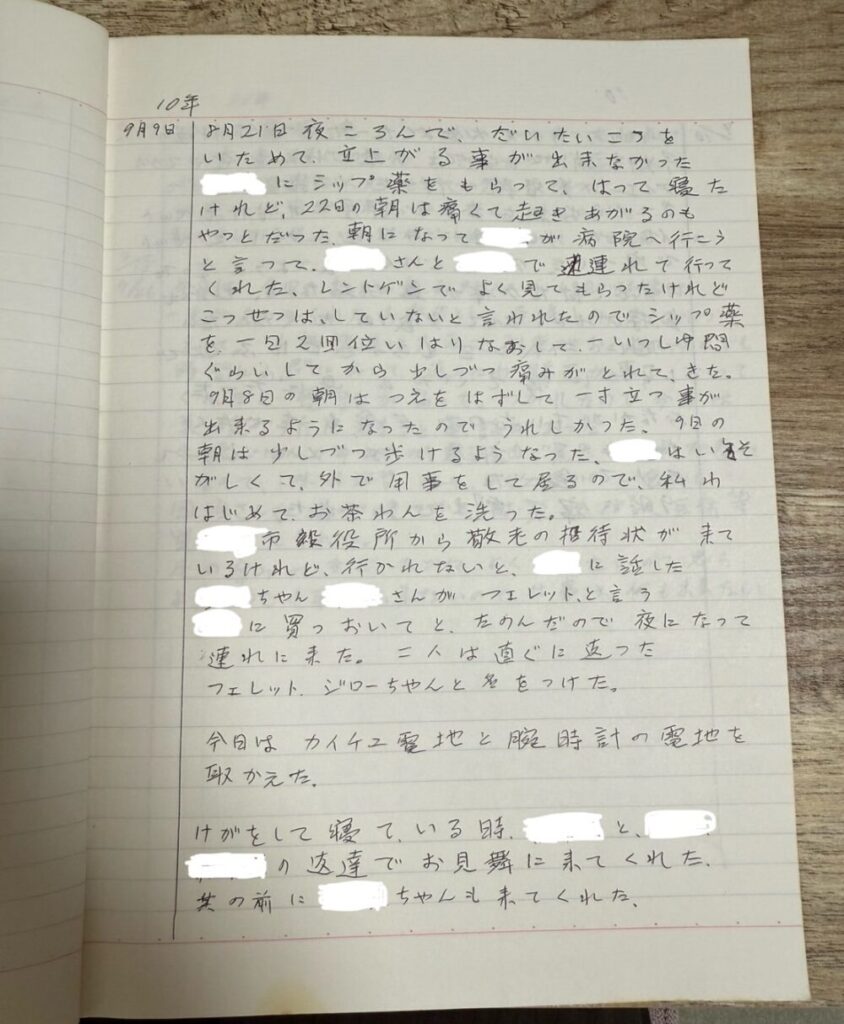 10年
9月9日 8月21日夜ころんで、だいたいこつを
いためて、立上がる事が出来なかった
にシップ薬をもらって、はって寝た
けれど、22日の朝は痛くて起きあがるのも
やっとだった、朝になって が病院へ行こう
と言って、 さんと で連れて行って
くれた、レントゲンでよく見てもらったけれど
こっせつは、していないと言われたのでシップ薬
を、一日2回位いはりなおして、一いっしゆ間
ぐらいしてから少しづつ痛みがとれて、きた。
9月8日の朝はつえをはずして一寸立つ事が
出来るようになったのでうれしかった、9日の
朝は少しづつ歩けるようなった、 はいそ
がしくて、外で用事をして居るので、私わ
はじめて、お茶わんを洗った。
市役所から敬老の招待状が来て
いるけれど、行かれないと、 に話した
ちゃん さんがフェレット、と言う
に買っおいてと、たのんだので夜になって
連れに来た。二人は直ぐに返った
フェレット、ジローちゃんと名をつけた。
今日はカイチュ電地と腕時計の電地を
取かえた。
けがをして寝て、いる時、 と、
の友達でお見舞に来てくれた、
其の前に ちゃんも来てくれた、